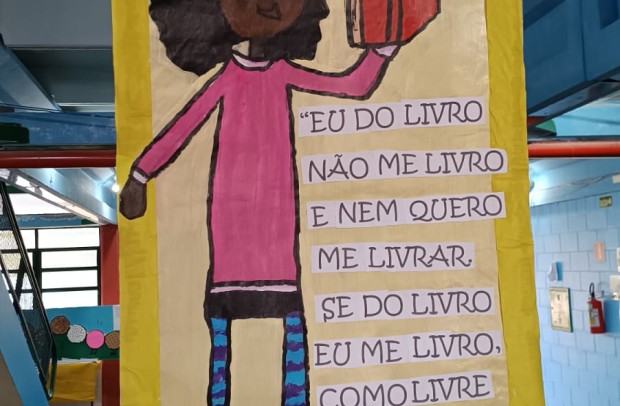 “EU DO LIVRO
NÃO ME LIVRO
E NEM QUERO
ME LIVRAR.
SE DO LIVRO
EU ME LIVRO,
COMO LIVRE